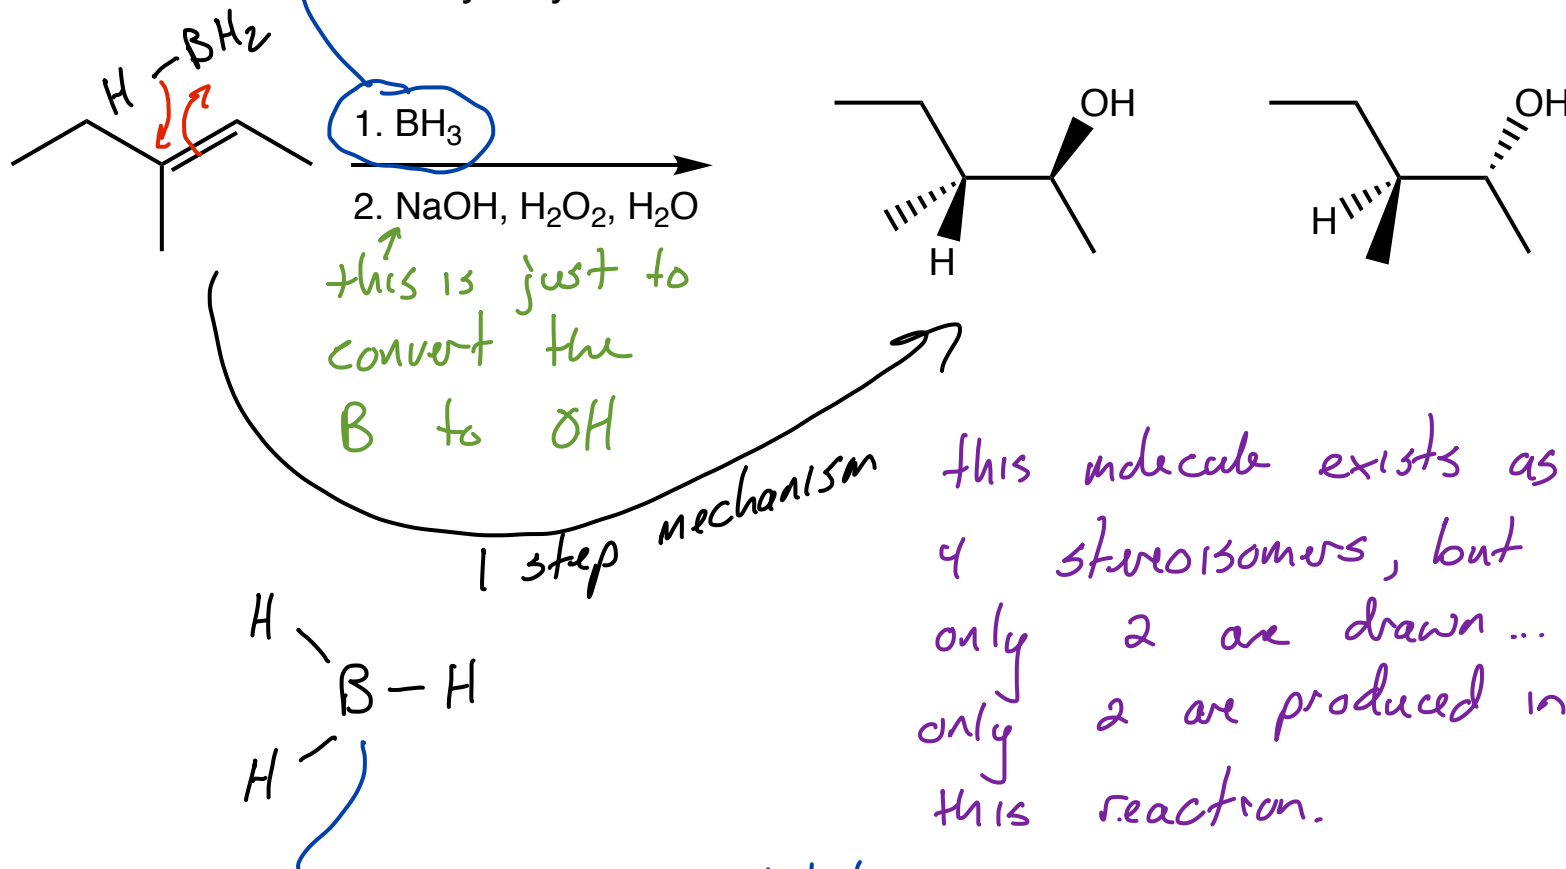 H-BH2
1. BH3
2. NaOH, H2O2, H2O
OH
H
OH
H
this is just to
convert the
B to OH
1 step mechanism
this molecule exists as
4 stereoisomers, but
only 2 are drawn...
only 2 are produced in
this reaction.
H
B-H
H